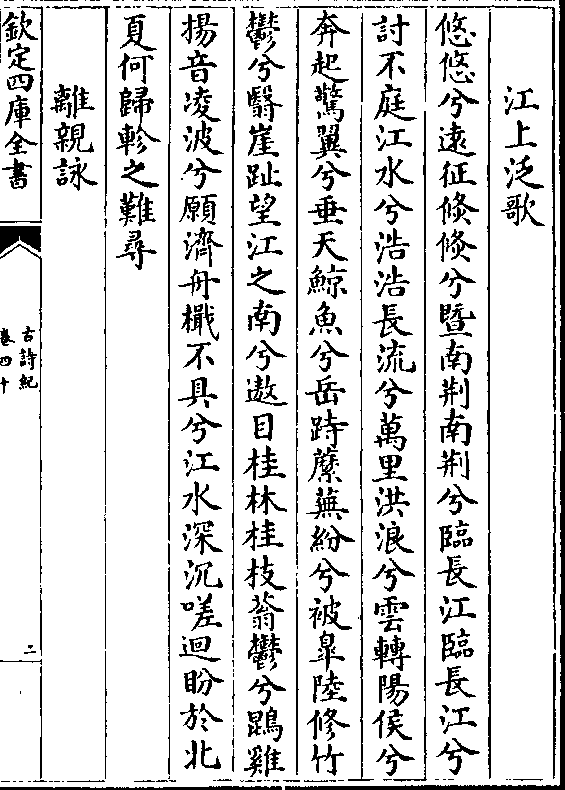 江上泛歌
悠悠兮遠征倏倏兮暨南荆南荆兮臨長江臨長江兮
討不庭江水兮浩浩長流兮萬里洪浪兮雲轉陽侯兮
奔起驚翼兮垂天鯨魚兮岳跱蘪蕪紛兮被臯陸修竹
鬱兮翳崖趾望江之南兮遨目桂林桂枝蓊鬱兮鵾雞
揚音凌波兮願濟舟檝不具兮江水深沉嗟迴盼於北
夏何歸軫之難尋
離親詠
欽定四庫全書
古詩紀
卷四十
二